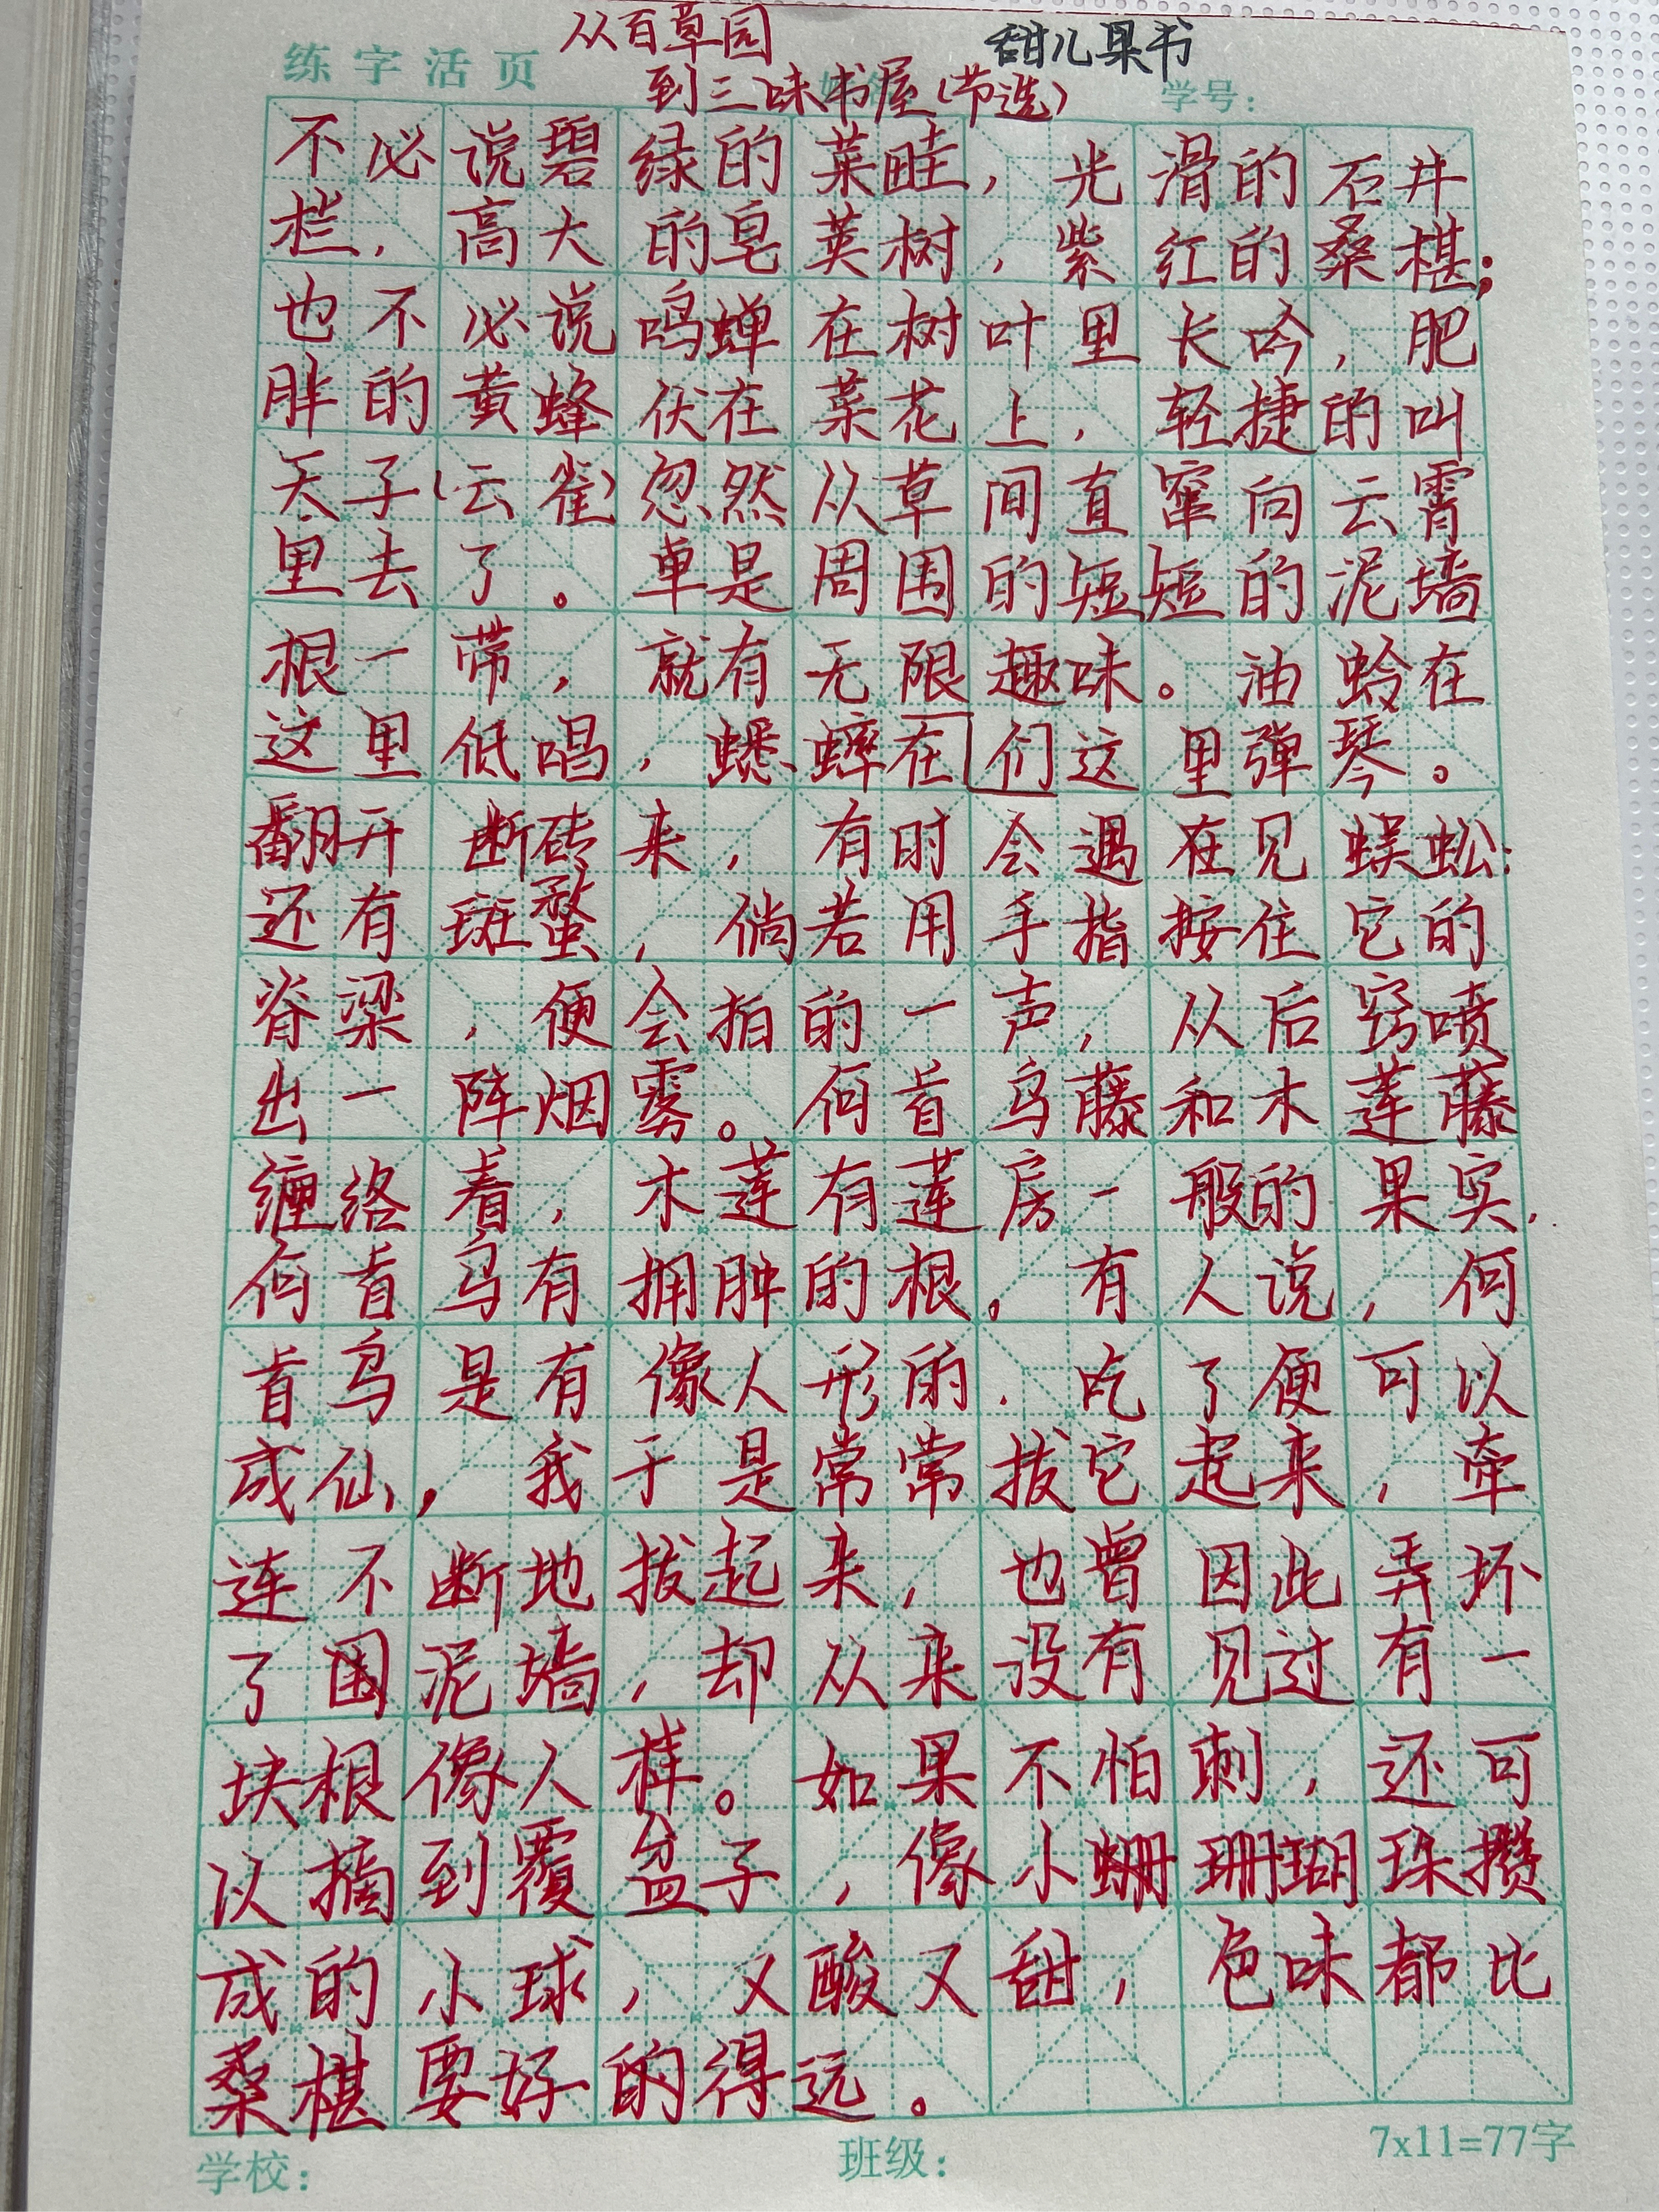 从百草园
甜儿果书
练字活页
到三味书屋(节选)
学号：
不必说碧绿的菜畦，光滑的石井
栏，高大的皂荚树，紫红的桑椹；
也不必说鸣蝉在树叶里长吟，肥
胖的黄蜂伏在菜花上，轻捷的叫
天子(云雀)忽然从草间直窜向云霄
里去了。单是周围的短短的泥墙
根一带，就有无限趣味。油蛉在
这里低唱，蟋蟀在们这里弹琴。
翻开断砖来，有时会遇在见蜈蚣；
还有斑蝥，倘若用手指按住它的
脊梁，便会拍的一声，从后窍喷
出一阵烟雾。何首乌藤和木莲藤
缠络着，木莲有莲房一般的果实，
何首乌有拥肿的根。有人说，何
首乌是有像人形的，吃了便可以
成仙，我于是常常拔它起来，牵
连不断地拔起来，也曾因此弄坏
了围泥墙，却从来没有见过有一
块根像人样。如果不怕刺，还可
以摘到覆盆子，像小珊珊瑚珠攒
成的小球，又酸又甜，色味都比
桑椹要好的得远。
学校：
班级：
7x11=77字